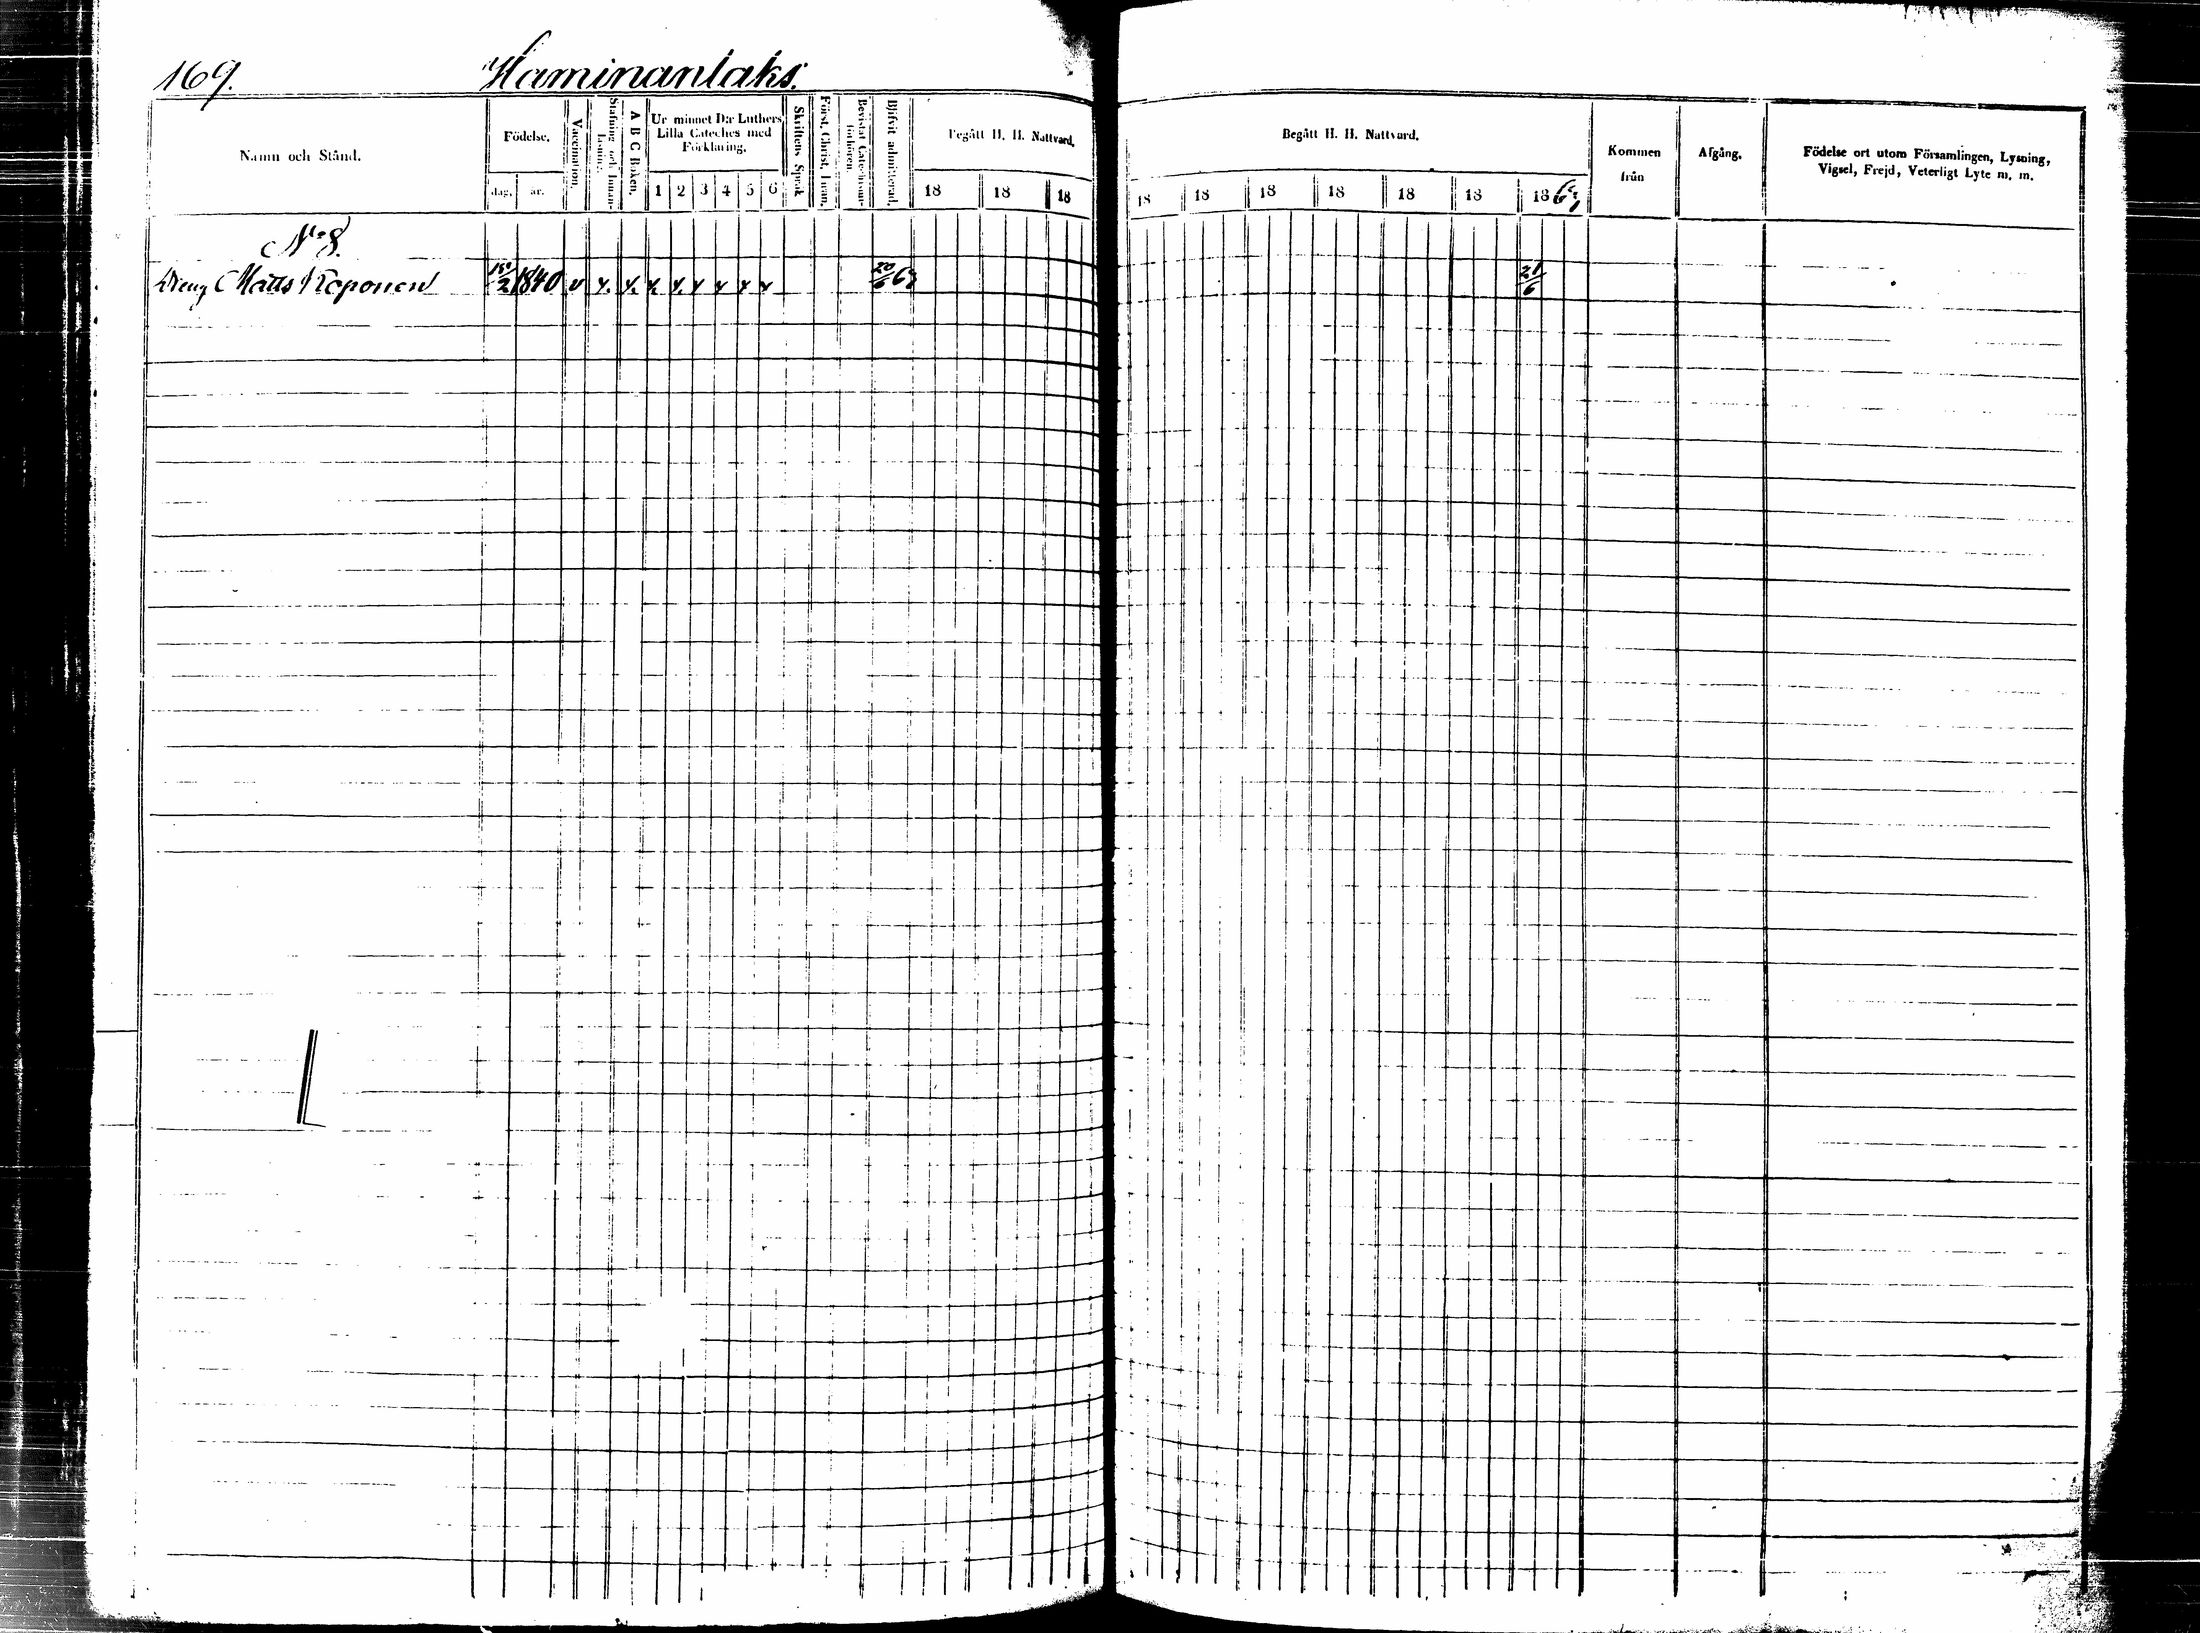 169. Haminanlaks.
Namn och Stånd.
Födelse.
dag.
år.
Vaccination.
Stafning och Innan-läsning.
A B C Boken.
Ur minnet D:r Luthers Lilla Cateches med Förklaring.
1 2 3 4 5 6
Skriftens Språk
Först. Christ. Inan.
Bevistat Catechismi-förhören.
Blifvit admitterad.
Begått H. H. Nattvard.
18 18 18
Begått H. H. Nattvard.
18 18 18 18 18 18 18
Kommen från
Afgång.
Födelse ort utom Församlingen, Lysning, Vigsel, Frejd, Veterligt Lyte m. m.
No 8.
Dreng Matts Roponen 1840 20/6 21/6